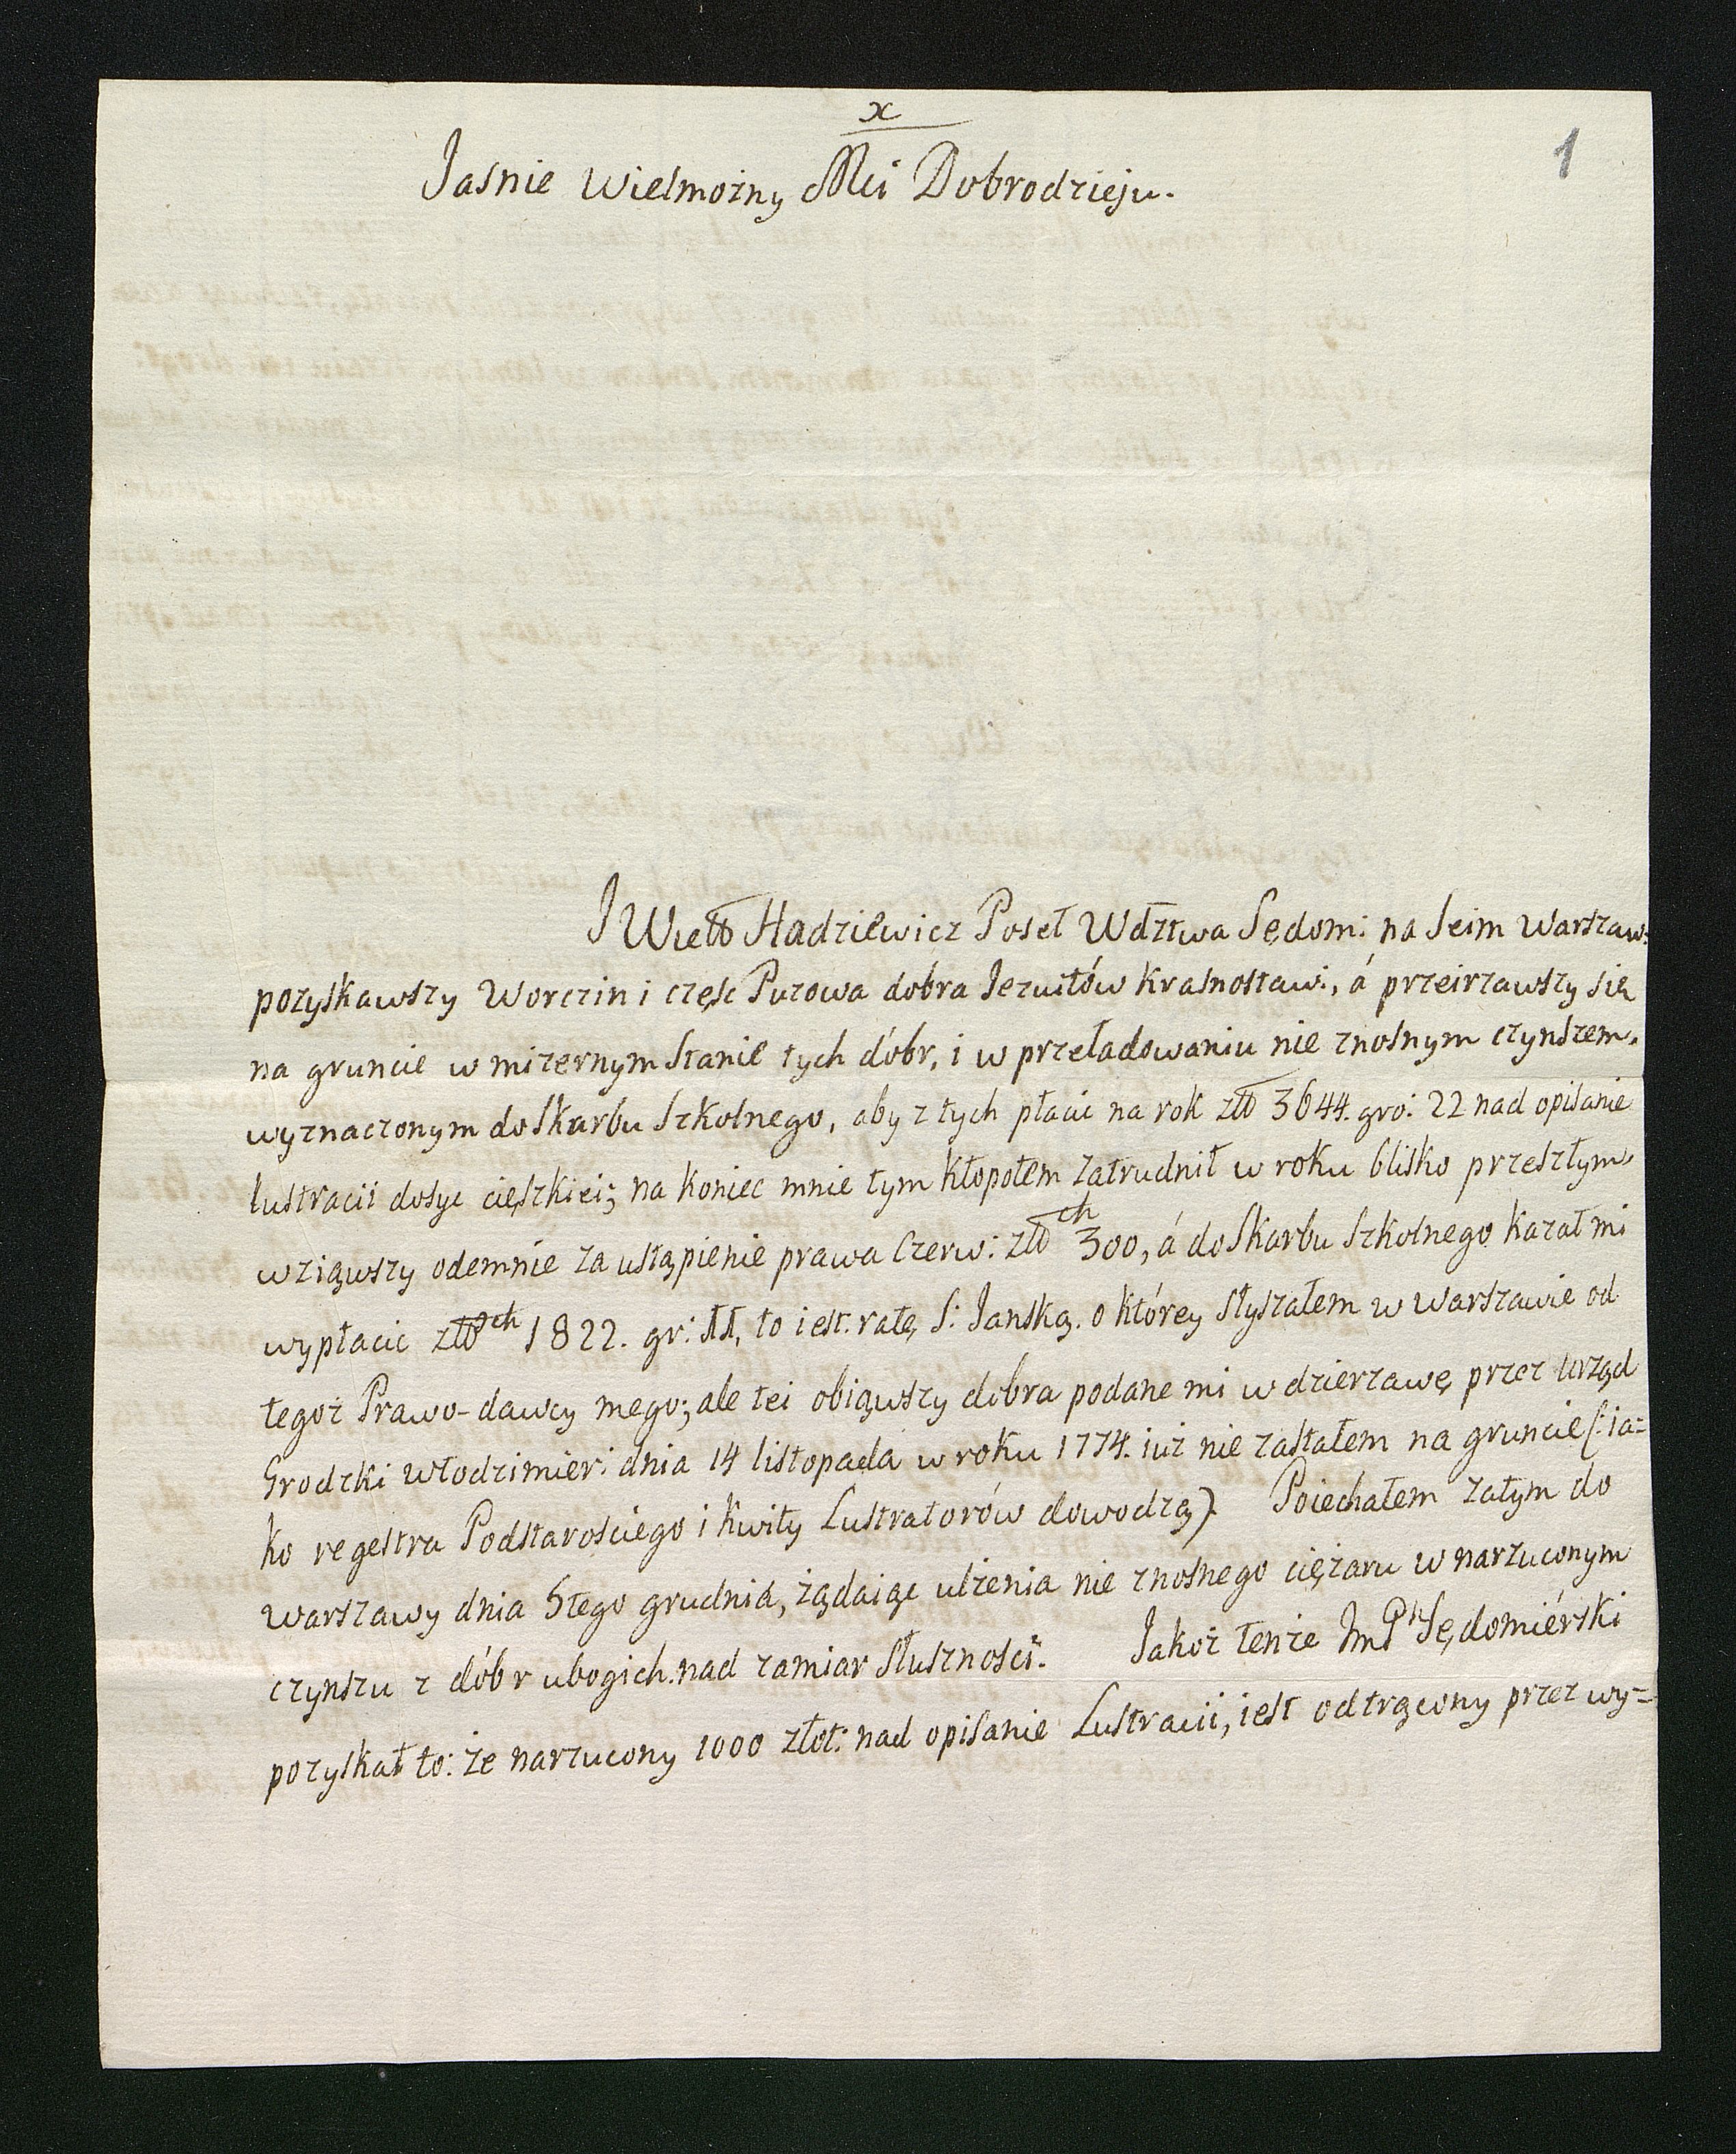 x
1
Jasnie Wielmożny Mci Dobrodzieju.
J Wielb Hadziewicz Poseł Wdztwa Sędom: na Seim Warszaw:
pozyskawszy Worczin i częsc Puzowa dóbra Jezuitów Krasnostaw:, á przeirzawszy się
na gruncie w mizernym stanie tych dóbr, i w przeładowaniu nie znosnym czynszem,
wyznaczonym do Skarbu Szkolnego, aby z tych płacic na rok złł 3644. gro: 22 nad opisanie
lustracii dosyc cięszkiei; na koniec mnie tym kłopotem zatrudnił w roku blisko przeszłym,
wziąwszy odemnie za ustąpienie prawa Czerw: złł ch 300, á do Skarbu Szkolnego kazał mi
wypłacic złł ch 1822. gr: 11, to iest. ratę S: Janską. o którey słyszałem w Warszawie od
tegoż Prawo-dawcy mego; ale tei obiąwszy dobra podane mi w dzierzawę przez Urząd
Grodzki Włodzimier: dnia 14 listopada w roku 1774. iuż nie zastałem na gruncie (: ia=
ko regestra Podstarosciego i kwity Lustratorów dowodzą). Poiechałem zatym do
Warszawy dnia 5tego grudnia, żądaiąc ulżenia nie znosnego ciężaru w narzuconym
czynszu z dóbr ubogich. nad zamiar słusznosci. Jakoż tenże ImP Sędomiérski
pozyskał to: że narzucony 1000 złot: nad opisanie Lustracii, iest odtrącony przez wy=